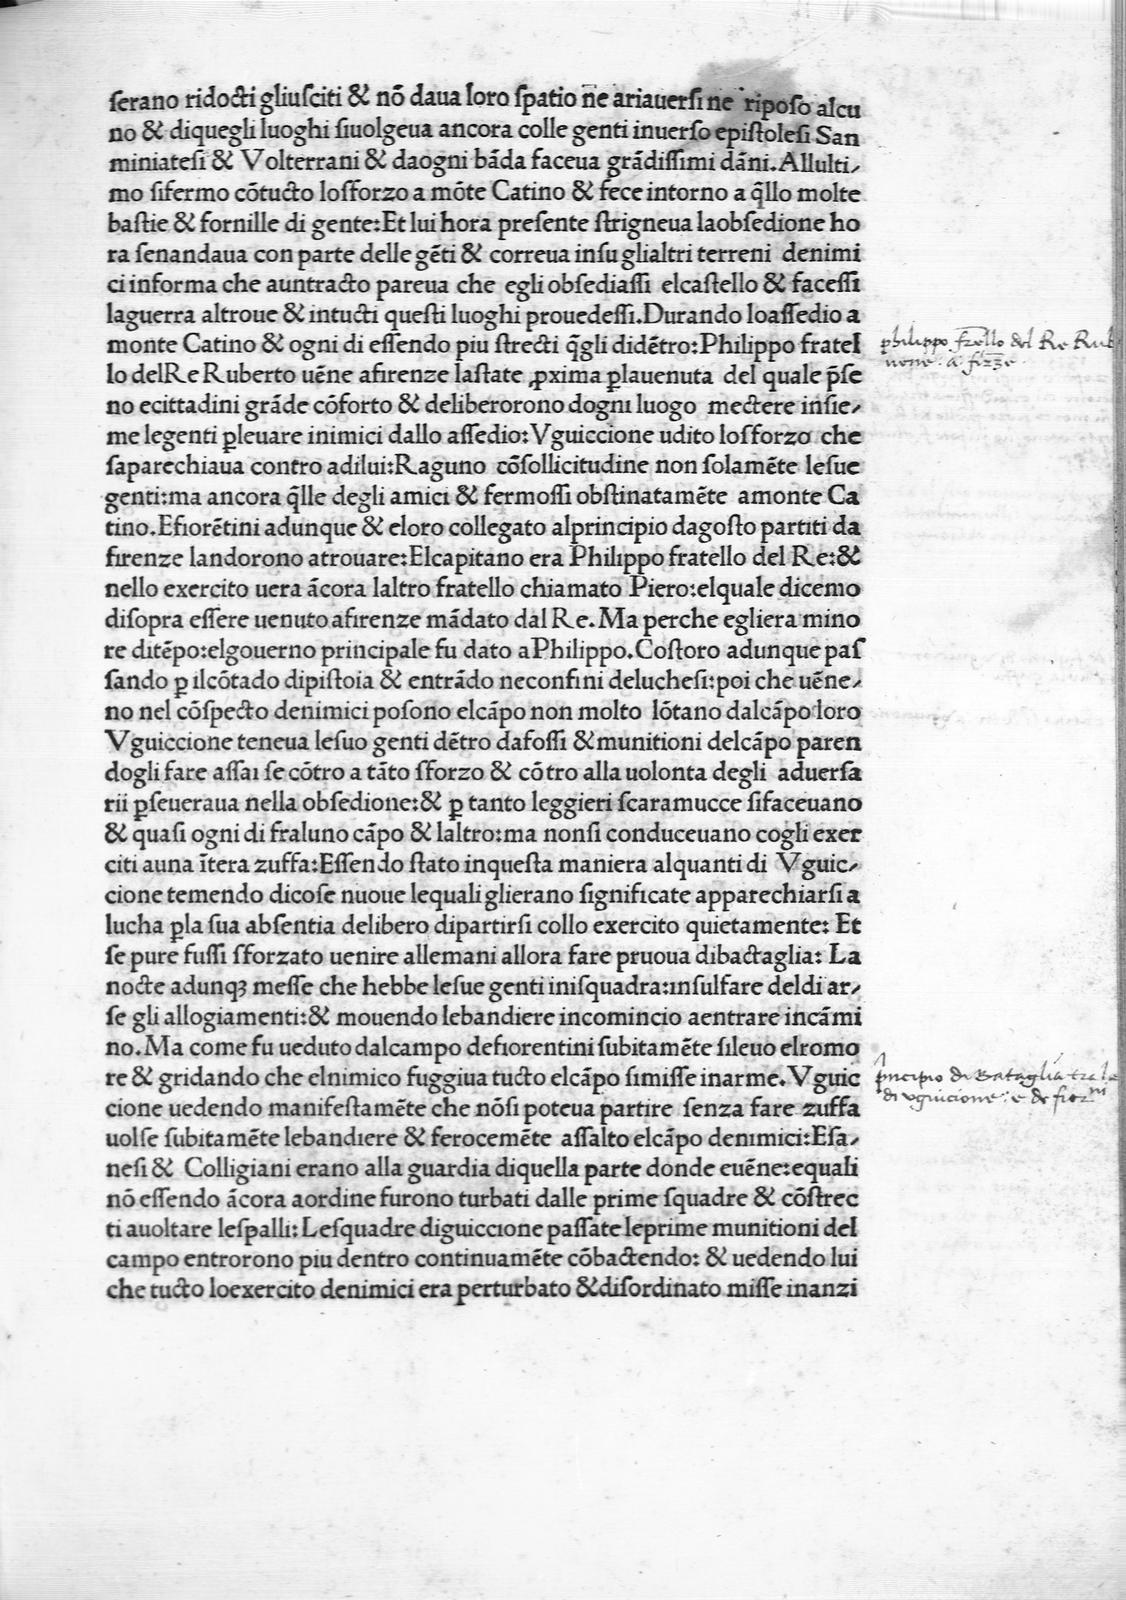 ſerano ridocti gliuſciti & nō daua loro ſpatio ñe ariauerſi ne ripoſo alcu
no & diquegli luoghi ſiuolgeua ancora colle genti inuerſo epiſtoleſi San
miniateſi & Volterrani & daogni bāda faceua grādiſſimi dāni.Allulti⸗
mo ſifermo cōtucto loſforzo a mōte Catino & fece intorno a q̄llo molte
baſtie & fornille di gente:Et lui hora preſente ſtrigneua laobſedione ho
ra ſenandaua con parte delle gēti & correua inſu glialtri terreni denimi
ci informa che auntracto pareua che egli obſediaſſi elcaſtello & faceſſi
laguerra altroue & intucti queſti luoghi prouedeſſi.Durando loaſſedio a
monte Catino & ogni di eſſendo piu ſtrecti q̄gli didētro:Philippo fratel
lo delRe Ruberto uēne afirenze laſtate ꝓxima ꝑlauenuta del quale p̄ſe
no ecittadini grāde cōforto & deliberorono dogni luogo mectere inſie⸗
me legenti ꝑleuare inimici dallo aſſedio:Vguiccione udito loſforzo che
ſaparechiaua contro adilui:Raguno cōſollicitudine non ſolamēte leſue
genti:ma ancora q̄lle degli amici & fermoſſi obſtinatamēte amonte Ca
tino.Efiorētini adunque & eloro collegato alprincipio dagoſto partiti da
firenze landorono atrouare:Elcapitano era Philippo fratello del Re:&
nello exercito uera ācora laltro fratello chiamato Piero:elquale dicemo
diſopra eſſere uenuto afirenze mādato dal Re.Ma perche egliera mino
re ditēpo:elgouerno principale fu dato aPhilippo.Coſtoro adunque paſ
ſando ꝑ ilcōtado dipiſtoia & entrādo neconfini delucheſi:poi che uēne⸗
no nel cōſpecto denimici poſono elcāpo non molto lōtano dalcāpo loro
Vguiccione teneua leſuo genti dētro dafoſſi & munitioni delcāpo paren
dogli fare aſſai ſe cōtro a tāto ſforzo & cōtro alla uolonta degli aduerſa
rii ꝑſeueraua nella obſedione:& ꝑ tanto leggieri ſcaramucce ſifaceuano
& quaſi ogni di fraluno cāpo & laltro:ma nonſi conduceuano cogli exer
citi auna ītera zuffa:Eſſendo ſtato inqueſta maniera alquanti di Vguic⸗
cione temendo dicoſe nuoue lequali glierano ſignificate apparechiarſi a
lucha ꝑla ſua abſentia delibero dipartirſi collo exercito quietamente: Et
ſe pure fuſſi ſforzato uenire allemani allora fare pruoua dibactaglia: La
nocte adunqꝫ meſſe che hebbe leſue genti iniſquadra:inſulfare deldi ar⸗
ſe gli allogiamenti:& mouendo lebandiere incomincio aentrare incāmi
no.Ma come fu ueduto dalcampo defiorentini ſubitamēte ſileuo elromo
re & gridando che elnimico fuggiua tucto elcāpo ſimiſſe inarme.Vguic
cione uedendo manifeſtamēte che nōſi poteua partire ſenza fare zuffa
uolſe ſubitamēte lebandiere & ferocemēte aſſalto elcāpo denimici:Eſa⸗
neſi & Colligiani erano alla guardia diquella parte donde euēne:equali
nō eſſendo ācora aordine furono turbati dalle prime ſquadre & cōſtrec
ti auoltare leſpalli:Leſquadre diguiccione paſſate leprime munitioni del
campo entrorono piu dentro continuamēte cōbactendo: & uedendo lui
che tucto loexercito denimici era perturbato &diſordinato miſſe inanzi
philippo frēllo del Re Rub
uene a firze
principio di Bataglia tra le
di vguicione e de fior